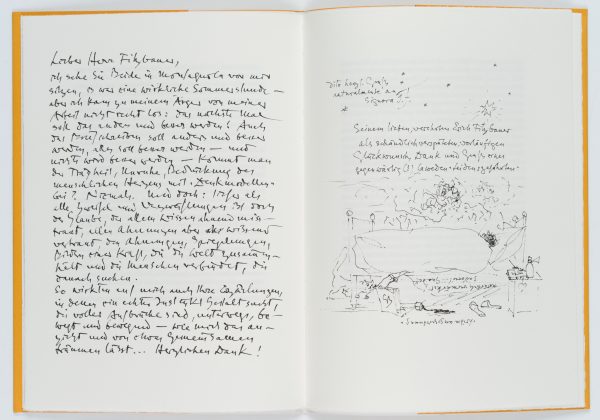 Lieber Herr Fitzbauer,
ich sehe Sie Beide in Montagnola vor mir
sitzen, es war eine wirkliche Sommerstunde –
aber ich kam zu meinem Ärger von meiner
Arbeit nicht recht los: das nächste Mal
soll das anders und besser werden! Auch
das Briefschreiben soll anders und besser
werden, alles soll besser werden – und
nichts wird besser werden – kommt man
der Trägheit, Unruhe, Bedrückung des
menschlichen Herzens mit „Denkmodellen"
bei? Niemals. Und doch: tiefer als
alle Zweifel und Verzweiflungen ist doch
der Glaube, der allem Wissen ahnend miss-
traut, allen Ahnungen aber wissend
vertraut, den Ahnungen, Spiegelungen,
Bildern einer Kraft, die die Welt zusammen-
hält und die Menschen verbindet, die
danach suchen.
So wirkten auf mich auch Ihre Erzählungen,
in denen ein echter Gestalt sucht,
die voller Aufbrüche sind, unterwegs, be-
wegt und bewegend – wie mich das an-
rührt und von etwas Gemeinsamem
träumen lässt... Herzlichen Dank!
Dito herzl. Grüße
naturalmente an
Signora!!
Seinem lieben verehrten Erich Fitzbauer
als schändlich verspäteten, vorläufigen
Glückwunsch, Dank und Gruß eines
gegenwärtig (!)